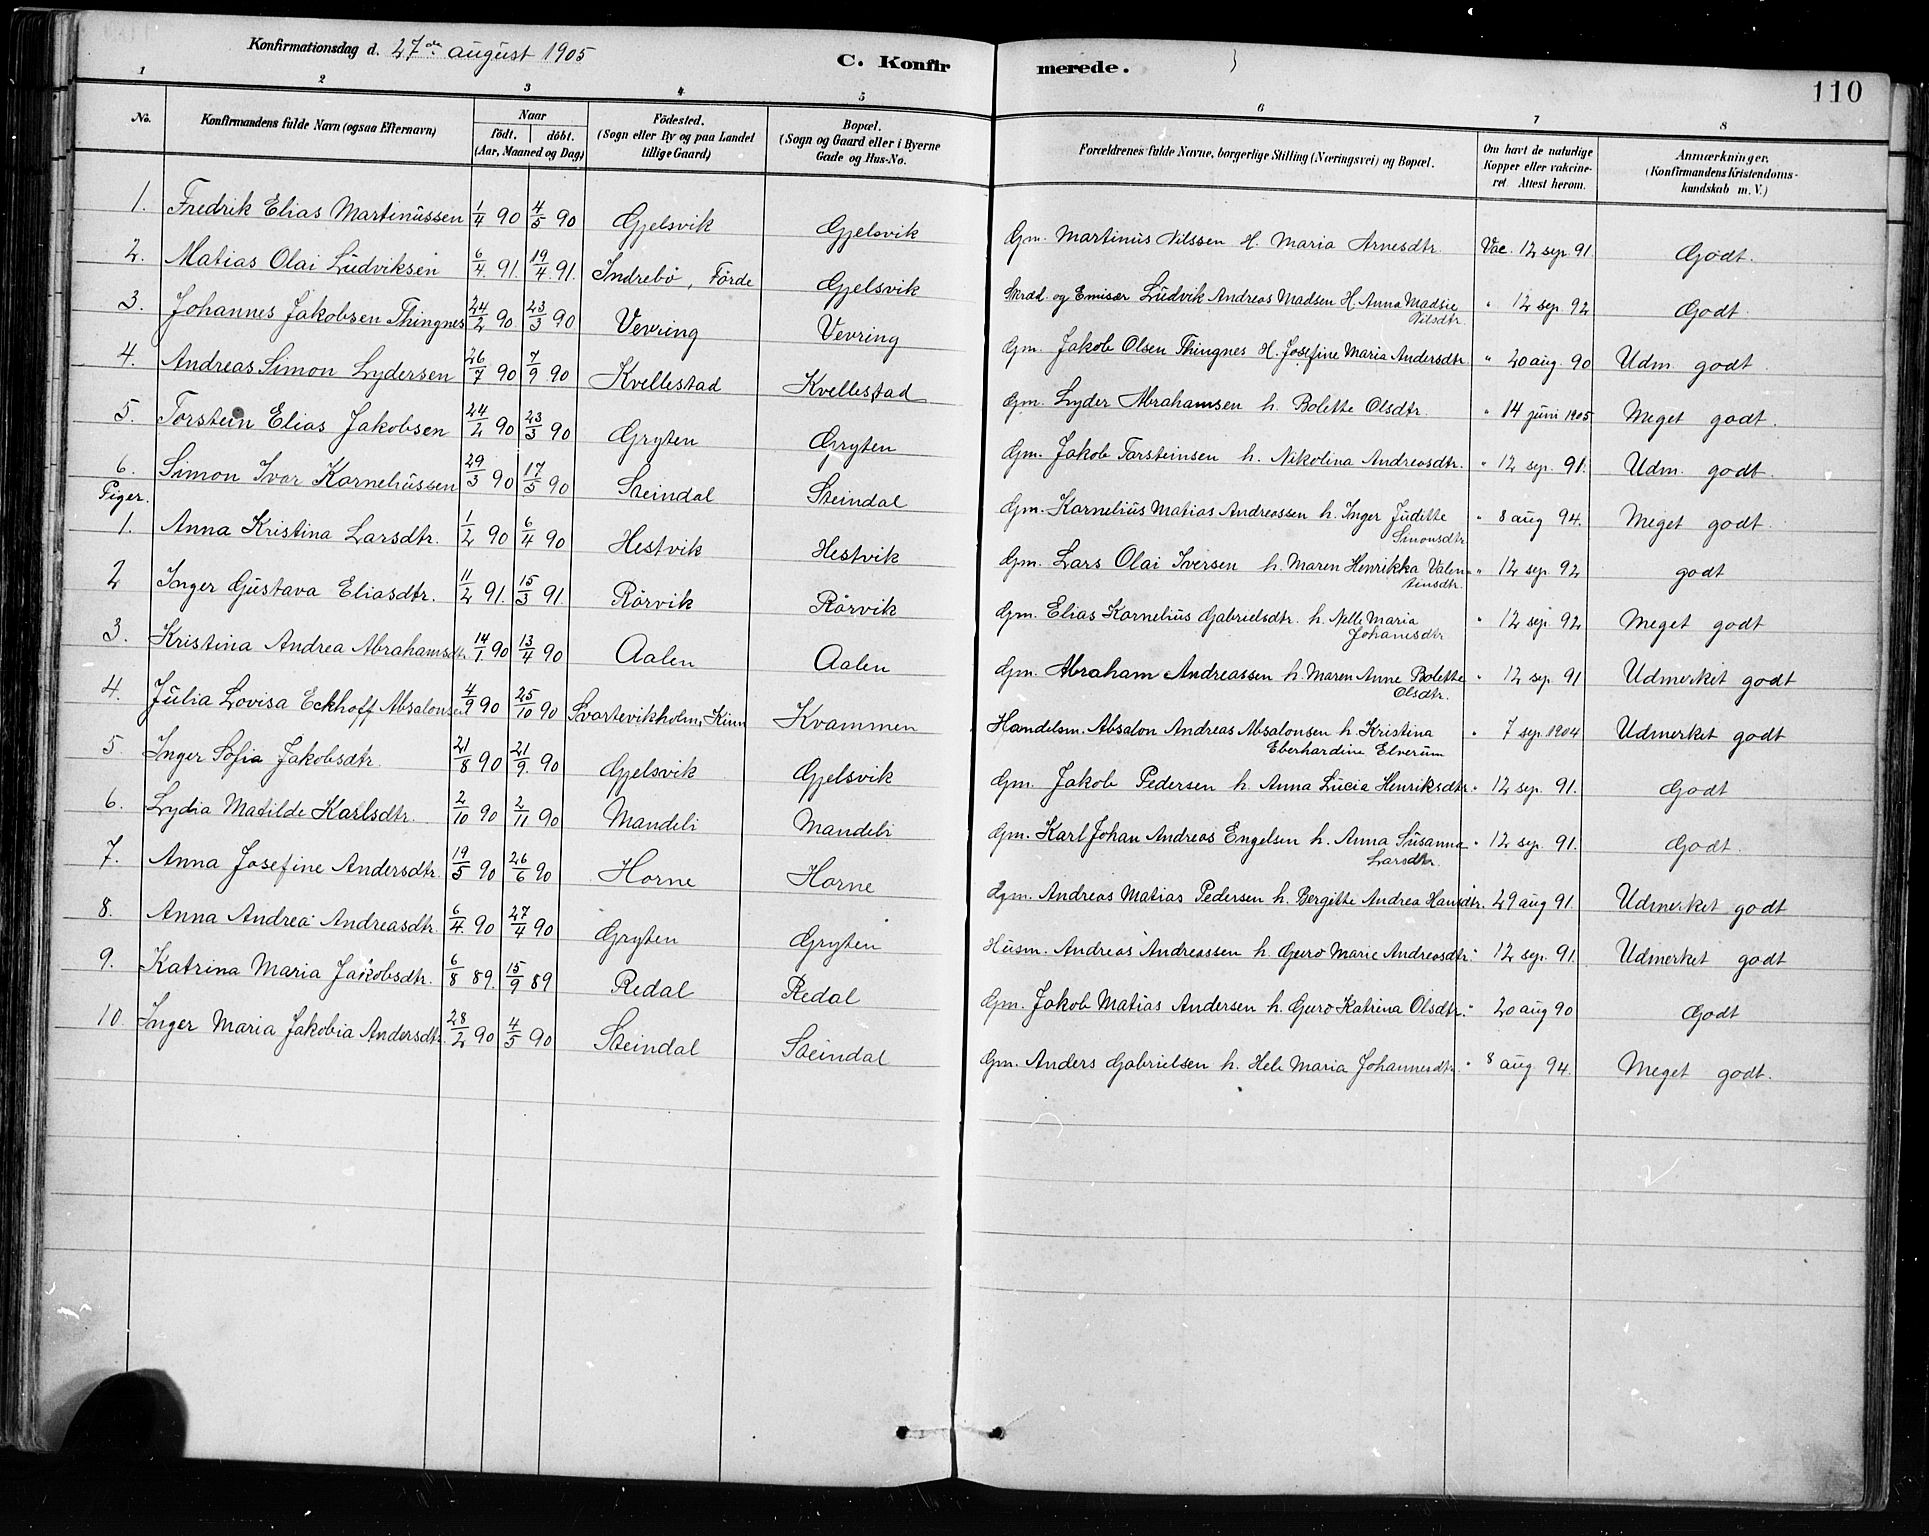 Konfirmationsdag d. 27de august 1905
C. Konfirmerede.
110
1 2 3 4 5 6 7 8
No.
Konfirmandens fulde Navn (ogsaa Efternavn)
Naar
födt. döbt.
(Aar, Maaned og Dag)
Födested.
(Sogn eller By og paa Landet
tillige Gaard)
Bopæl.
(Sogn og Gaard eller i Byerne
Gade og Hus-No.
Forældrenes fulde Navne, borgerlige Stilling (Næringsvei) og Bopæl.
Om havt de naturlige
Kopper eller vakcine-
ret. Attest herom.
Anmærkninger.
(Konfirmandens Kristendoms-
kundskab m. V.)
1. Fredrik Elias Martinussen 1/4 90 4/5 90 Gjelsvik Gjelsvik Gm. Martinus Nilssen H. Maria Arnesdtr. Vac. 12 sep. 91. Godt.
2. Matias Olai Ludviksen 6/4 91. 19/4 91. Indrebö, Förde Gjelsvik Skræd. og Emisær Ludvik Andreas Madsen H. Anna Madsie Nilsdtr. " 12 sep. 92 Godt.
3. Johannes Jakobsen Thingnes 24/2 90 23/3 90 Vevring Vevring Gm. Jakob Olsen Thingnes H. Josefine Maria Andersdtr " 20 aug 90 Udm. godt.
4. Andreas Simon Lydersen 26/7 90 7/9 90 Kvellestad Kvellestad Gm. Lyder Abrahamsen h. Bolette Olsdtr. " 14 juni 1905 Meget godt.
5. Torstein Elias Jakobsen 24/2 90 23/3 90 Gryten Gryten Gm. Jakob Torsteinsen h. Nikolina Andreasdtr. " 12 sep. 91. Udm. godt.
6. Simon Ivar Kornelüssen 29/3 90 17/5 90 Steindal Steindal Gm. Kornelius Matias Andreassen h. Inger Juditte Simonsdtr. " 8 aug 94. Meget godt.
Piger.
1. Anna Kristina Larsdtr. 1/2 90 6/4 90 Hestvik Hestvik Gm. Lars Olai Iversen h. Maren Henrikka Valentinsdtr. " 12 sep. 92 godt
2 Inger Gustava Eliasdtr. 11/2 91. 15/3 91. Rörvik Rörvik Gm. Elias Kornelius Gabrielsdtr. h. Nelle Maria Johannesdtr " 12 sep. 92 Meget godt
3. Kristina Andrea Abrahamsdtr. 14/1 90 13/4 90 Aalen Aalen Gm. Abraham Andreassen h. Maren Anne Bolette Olsdtr. " 12 sep. 91 Udmerket godt
4. Julia Lovisa Eckhoff Absalonsen 4/9 90 25/10 90 Svartevikholm, Kinn Kvammen Handelsm. Absalon Andreas Absalonsen h. Kristina Eberhardine Elverum " 7 sep. 1904 Udmerket godt
5. Inger Sofia Jakobsdtr. 21/8 90 21/9. 90 Gjelsvik Gjelsvik Gm. Jakob Pedersen h. Anna Lucia Henriksdtr. " 12 sep. 91. Godt
6. Lydia Matilde Karlsdtr. 2/10 90 2/11 90 Mandeli Mandeli Gm. Karl Johan Andreas Engelsen h. Anna Susanna Larsdtr. " 12 sep. 91. Godt.
7. Anna Josefine Andersdtr. 19/5 90 26/6 90 Horne Horne Gm. Andreas Matias Pedersen h. Bergitte Andrea Hansdtr. " 29 aug 91. Udmerket godt
8. Anna Andrea Andreasdtr. 6/4. 90 27/4 90 Gryten Gryten Husm. Andreas Andreassen h. Guro Marie Andreasdtr. " 12 sep. 91. Udmerket godt
9. Katrina Maria Jakobsdtr. 6/8 89. 15/9 89 Redal Redal Gm. Jakob Matias Andersen h. Guro Katrina Olsdtr. " 20 aug 90 Godt
10. Inger Maria Jakobia Andersdtr. 28/2 90 4/5 90 Steindal Steindal Gm. Anders Gabrielsen h. Hele Maria Johannesdtr. " 8 aug 94. Meget godt.